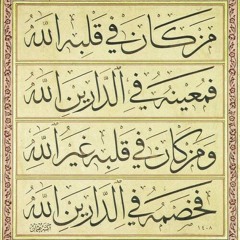 من كان في قلبه الله
فمعينه في الدارين الله
ومن كان في قلبه غير الله
فخصمه في الدارين الله
١٤٠٨